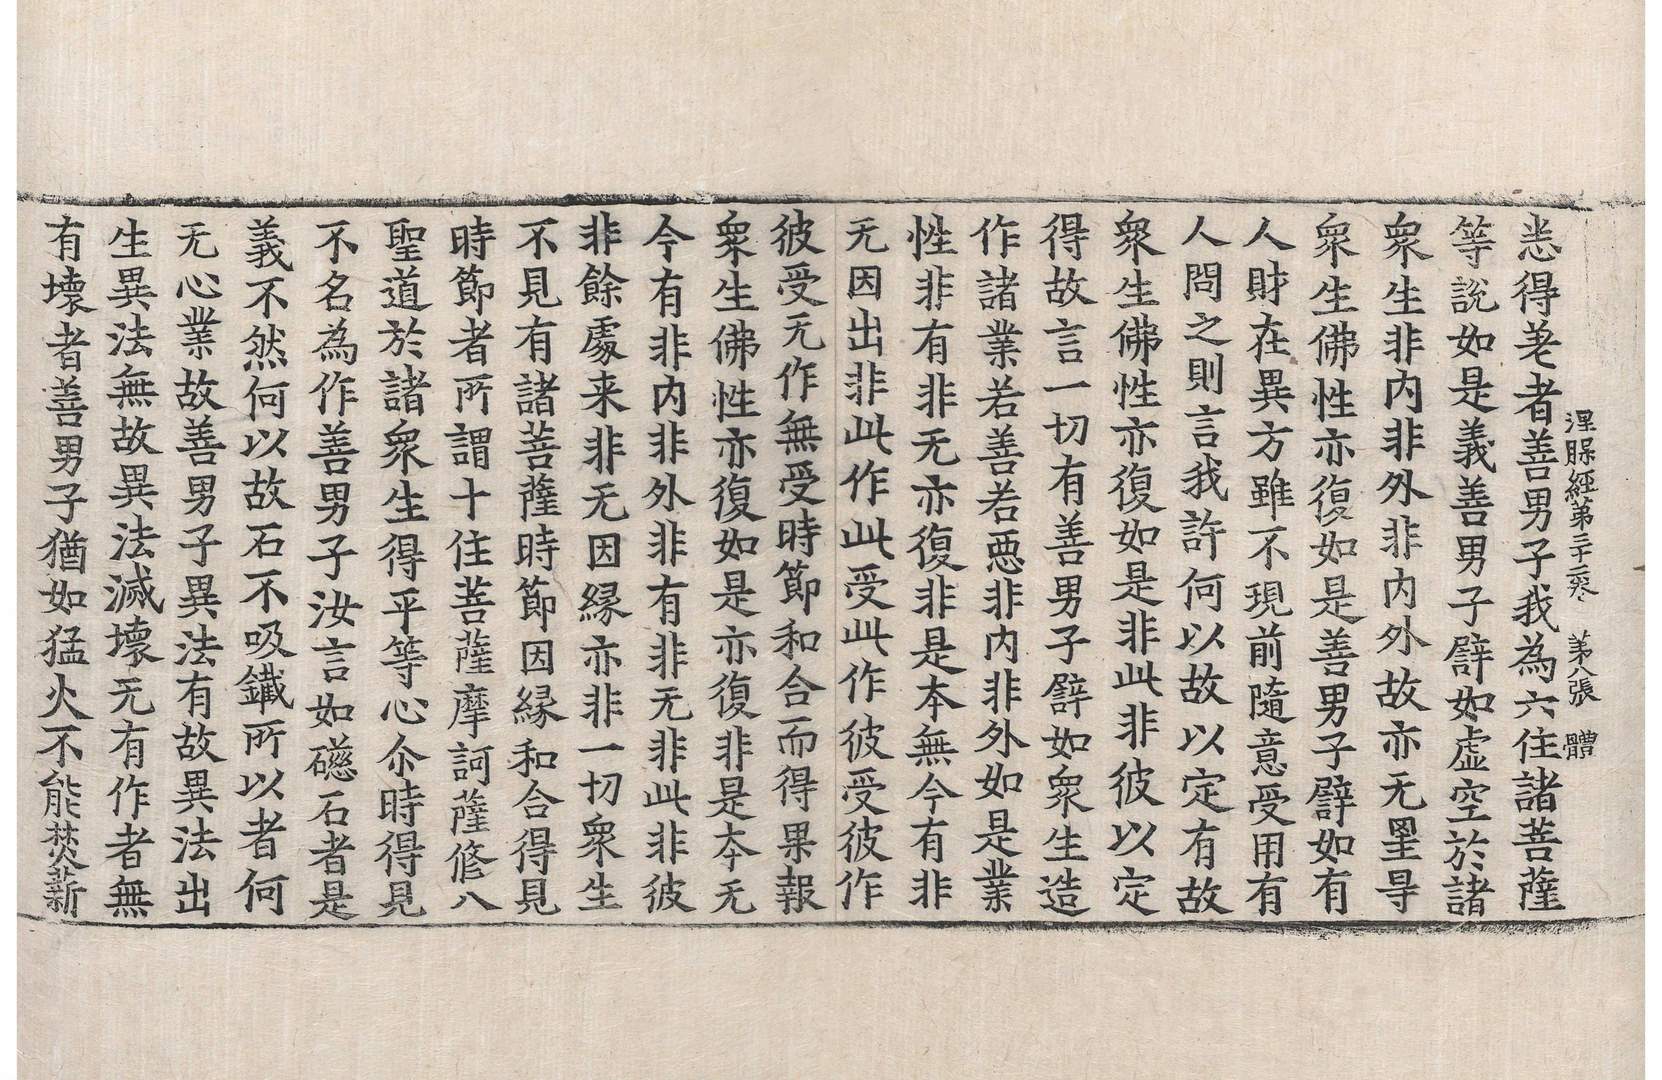 涅槃經第三十二卷　第八張　體
悉得差者善男子我為六住諸菩薩
等說如是義善男子譬如虛空於諸
衆生非内非外非内外故亦无罣㝵
衆生佛性亦復如是善男子譬如有
人財在異方雖不現前隨意受用有
人問之則言我許何以故以定有故
衆生佛性亦復如是非此非彼以定
得故言一切有善男子譬如衆生造
作諸業若善若惡非内非外如是業
性非有非无亦復非是本無今有非
无因出非此作此受此作彼受彼作
彼受无作無受時節和合而得果報
衆生佛性亦復如是亦復非是本无
今有非内非外非有非无非此非彼
非餘處来非无因縁亦非一切衆生
不見有諸菩薩時節因縁和合得見
時節者所謂十住菩薩摩訶薩修八
聖道於諸衆生得平等心尒時得見
不名為作善男子汝言如礠石者是
義不然何以故石不吸鐵所以者何
无心業故善男子異法有故異法出
生異法無故異法滅壞无有作者無
有壞者善男子猶如猛火不能焚薪